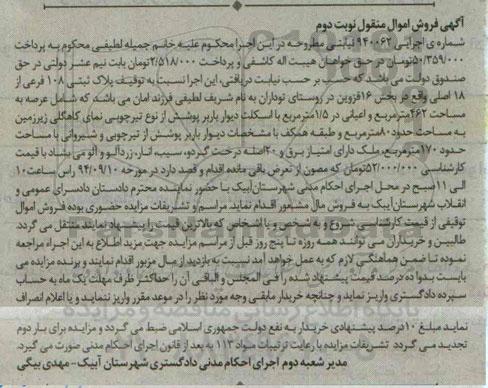 آگهی فروش اموال منقول نوبت دوم
شماره ی اجرایی ۹۴۰۰۶۲ نیابتی مطروحه در این اجرا محکوم علیه خانم جمیله لطیفی محکوم به پرداخت
۵۰/۳۵۹/۰۰۰تومان در حق خواهان هیبت اله کاشفی و پرداخت ۲/۵۱۸/۰۰۰تومان بابت نیم عشر دولتی در حق
صندوق دولت می باشد که حسب بر حسب نیابت دریافتی، این اجرا نسبت به توقیف پلاک ثبتی ۱۰۸ فرعی از
۱۸ اصلی واقع در بخش ۱۶قزوین در روستای توداران به نام شریف لطیفی فرزند امان می باشد که شامل عرصه به
مساحت ۲۶۲مترمربع و اعیانی در ۱/۵مترمربع با اسکلت دیوار باربر پوشش از نوع تیرچوبی نمای کاهگلی زیرزمین
به مساحت حدود ۸۰مترمربع و طبقه همکف با مشخصات دیوار باربر پوشش از تیرچوبی و شیروانی با مساحت
حدود ۱۷۰مترمربع، ملک دارای امتیاز برق و ۲۰اصله درخت گردو، سیب، انار، زردآلو و آلو می باشد با قیمت
کارشناسی ۵۲/۰۰۰/۰۰۰تومان که مصون از تعرض باقی مانده اقدام و قصد دارد در مورخه ۹۴/۰۹/۱۰ راس ساعت۱۰
الی ۱۱صبح در محل اجرای احکام مدنی شهرستان آبیک با حضور نماینده محترم دادستان دادسرای عمومی و
انقلاب شهرستان آبیک به فروش مال مشعور اقدام نماید. مراسم و تشریفات مزایده حضوری بوده فروش اموال
توقیفی از قیمت کارشناسی شروع و به شخص و یا اشخاص که بالاترین قیمت را پیشنهاد نمایند منتقل می گردد.
طالبین و خریداران می توانند همه روزه تا پنج روز قبل از مراسم مزایده جهت مزید اطلاع به این اجرا مراجعه
نموده تا ضمن هماهنگی لازم که به عمل خواهد آمد نسبت به بازدید از مال مزبور اقدام نمایند و برنده مزایده می
بایست بدوا ده درصد قیمت پیشنهاد شده را فی المجلس و الباقی آن را حداکثر ظرف مهلت یک ماه به حساب
سپرده دادگستری واریز نماید و چنانچه خریدار مابقی وجه مورد نظر را در موعد مقرر واریز ننماید و یا اعلام انصراف
نماید مبلغ ۱۰درصد پیشنهادی خریدار به نفع دولت جمهوری اسلامی ضبط می گردد و مزایده برای بار دوم
تجدید می گردد. تشریفات مزایده با رعایت ترتیبات مواد ۱۱۳ به بعد از قانون اجرای احکام مدنی صورت می گیرد.
مدیر شعبه دوم اجرای احکام مدنی دادگستری شهرستان آبیک- مهدی بیگی